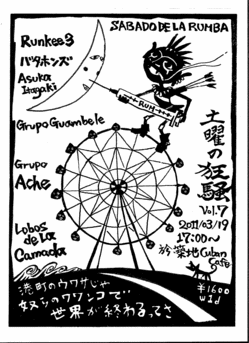 SABADO DE LA RUMBA
Runkee3
バタホンズ
Asuka
Itagaki
RUM
Grupo Guambele
Grupo
Ache
Lobos
de la
Camada
土曜の狂騒
Vol.7
2011/03/19
17:00〜
Cuban
Cafe
¥1600
w1d
港町のウワサじゃ
奴らのワワンコで
世界が終わるってさ